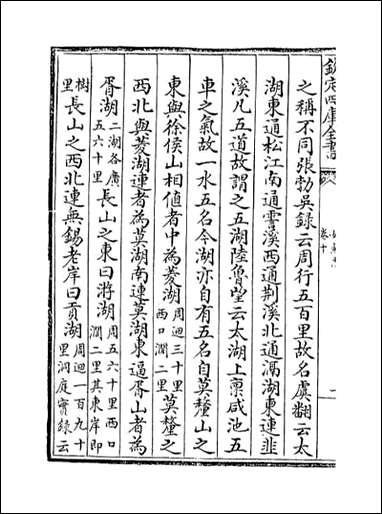 欽定四庫全書
卷十
之稱不同張勃吳録云周行五百里故名虞翻云太
湖東通松江南通霅溪西通荆溪北通滆湖東連韭
溪凡五道故謂之五湖陸魯望云太湖上禀咸池五
車之氣故一水五名今湖亦自有五名自莫釐山之
東與徐侯山相值者中為菱湖周迴三十里西口濶二里莫釐之
西北與菱湖連者為莫湖南連莫湖東逼胥山者為
胥湖二湖各廣五六十里長山之東曰㳺湖周五六十里西口濶二里其東岸即
樹里長山之西北連無錫老岸曰貢湖周迴一百九十里洞庭實録云